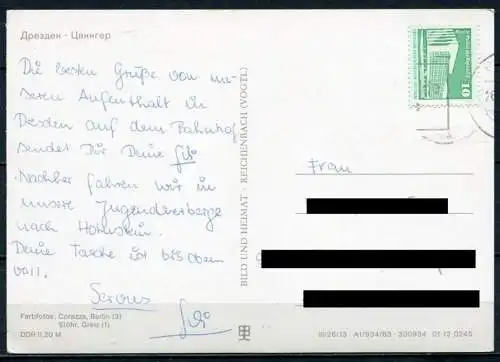 Дрезден - Цвингер
Die besten Grüße von un-
seren Aufenthalt in
Dresden auf dem Bahnhof
sendet Dir Deine
Nachher fahren wir in
unsere Jugendherberge
nach Hohnstein.
Deine Tasche ist bis oben
voll.
Servus
Farbfotos: Corazza, Berlin (3)
Stöhr, Greiz (1)
DDR 0,20 M
BILD UND HEIMAT · REICHENBACH (VOGTL)
10
Frau
III/26/13 A1/934/83 300934 01 12 0245